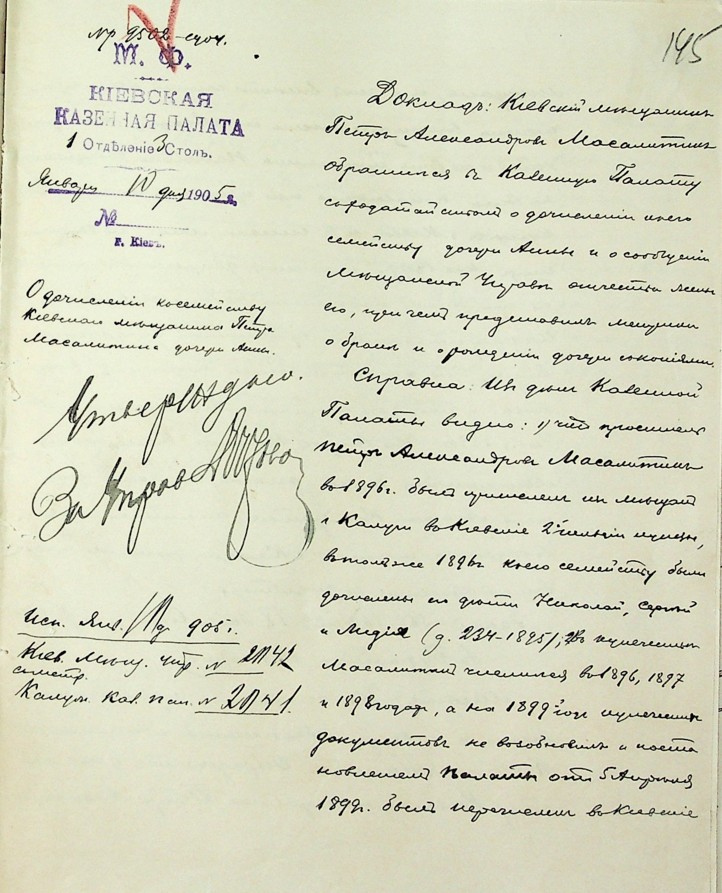 145
М. Ф.
КІЕВСКАЯ
КАЗЕННАЯ ПАЛАТА
1 Отдѣленіе 3 Столъ.
Января 10 дня 1905 г.
№
г. Кіевъ.
О дочисленіи къ семейству
Кіевскаго мѣщанина Петра
Масалитина дочери Анны.
Утверждаю.
За Управ
Исп. Янв. 905 г.
Кіев. Мѣщ. Упр. №
Калуж. Каз. Пал. №
Докладъ: Кіевскій мѣщанинъ
Петръ Александровъ Масалитинъ
обратился въ Казенную Палату
съ ходатайствомъ о дочисленіи къ его
семейству дочери Анны и о сообщеніи
Мѣщанской Управѣ отчества жены
его, при чемъ представилъ метрики
о бракѣ и о рожденіи дочери съ копіями.
Справка: Изъ дѣлъ Казенной
Палаты видно: 1) что проситель
Петръ Александровъ Масалитинъ
въ 1896 г. былъ причисленъ изъ мѣщанъ
г. Калуги въ Кіевскіе 2й гильдіи купцы,
въ томъ же 1896 г. къ его семейству были
дочислены его дѣти Николай, Сергѣй
и Лидія (д. 234-1895); въ купечествѣ
Масалитинъ числился въ 1896, 1897
и 1898 годахъ, а на 1899 годъ купеческихъ
документовъ не возобновилъ и поста
новленіемъ Палаты отъ 5 Апрѣля
1899 г. былъ перечисленъ въ Кіевскіе